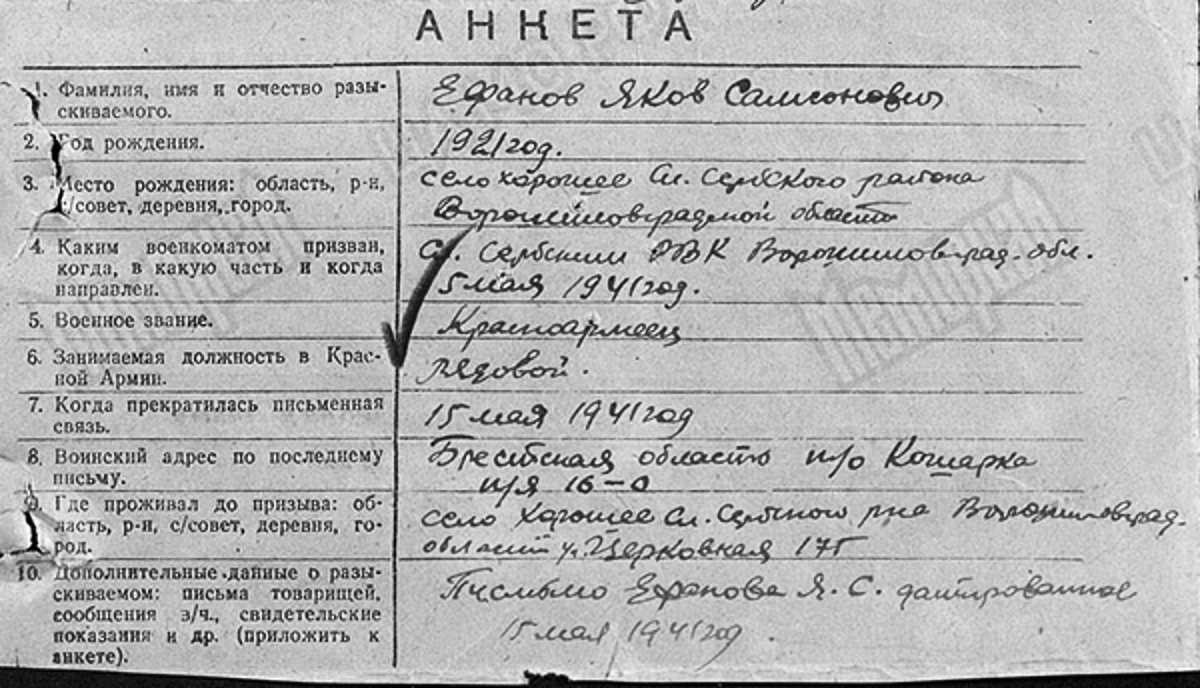 АНКЕТА
1. Фамилия, имя и отчество разы-
скиваемого.
Ефанов Яков Самсонович
2. Год рождения.
1921 год.
3. Место рождения: область, р-н,
с/совет, деревня, город.
село Хорошее Сл. Сербского района
Ворошиловградской области
4. Каким военкоматом призван,
когда, в какую часть и когда
направлен.
Сл. Сербский РВК Ворошиловград. обл.
5 мая 1941 год.
5. Военное звание.
Красноармеец
6. Занимаемая должность в Крас-
ной Армии.
рядовой.
7. Когда прекратилась письменная
связь.
15 мая 1941 год
8. Воинский адрес по последнему
письму.
Брестская область п/о Кошарка
п/я 16-0
9. Где проживал до призыва: об-
ласть, р-н, с/совет, деревня, го-
род.
село Хорошее Сл. Сербского р-на Ворошиловград.
области ул. Церковная 175
10. Дополнительные данные о разы-
скиваемом: письма товарищей,
сообщения з/ч., свидетельские
показания и др. (приложить к
анкете).
Письмо Ефанова Я. С. датированное
15 мая 1941 год.